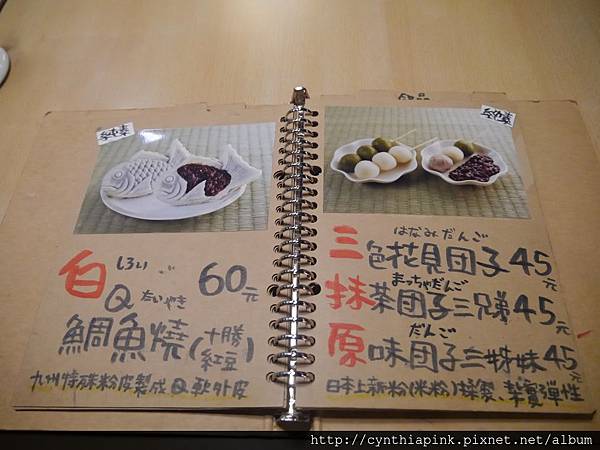 純素
しろい ご
白Q 60元
たいやき
鯛魚燒(十勝紅豆)
九州特殊粉皮製成Q軟外皮
純素
はなみだんご
三色花見団子45元
まっちゃだんご
抹茶団子三兄弟45元
だんご
原味団子三姊妹45元
日本上新粉(米粉)揉製、紮實彈性
http://cynthiapink.pixnet.net/album